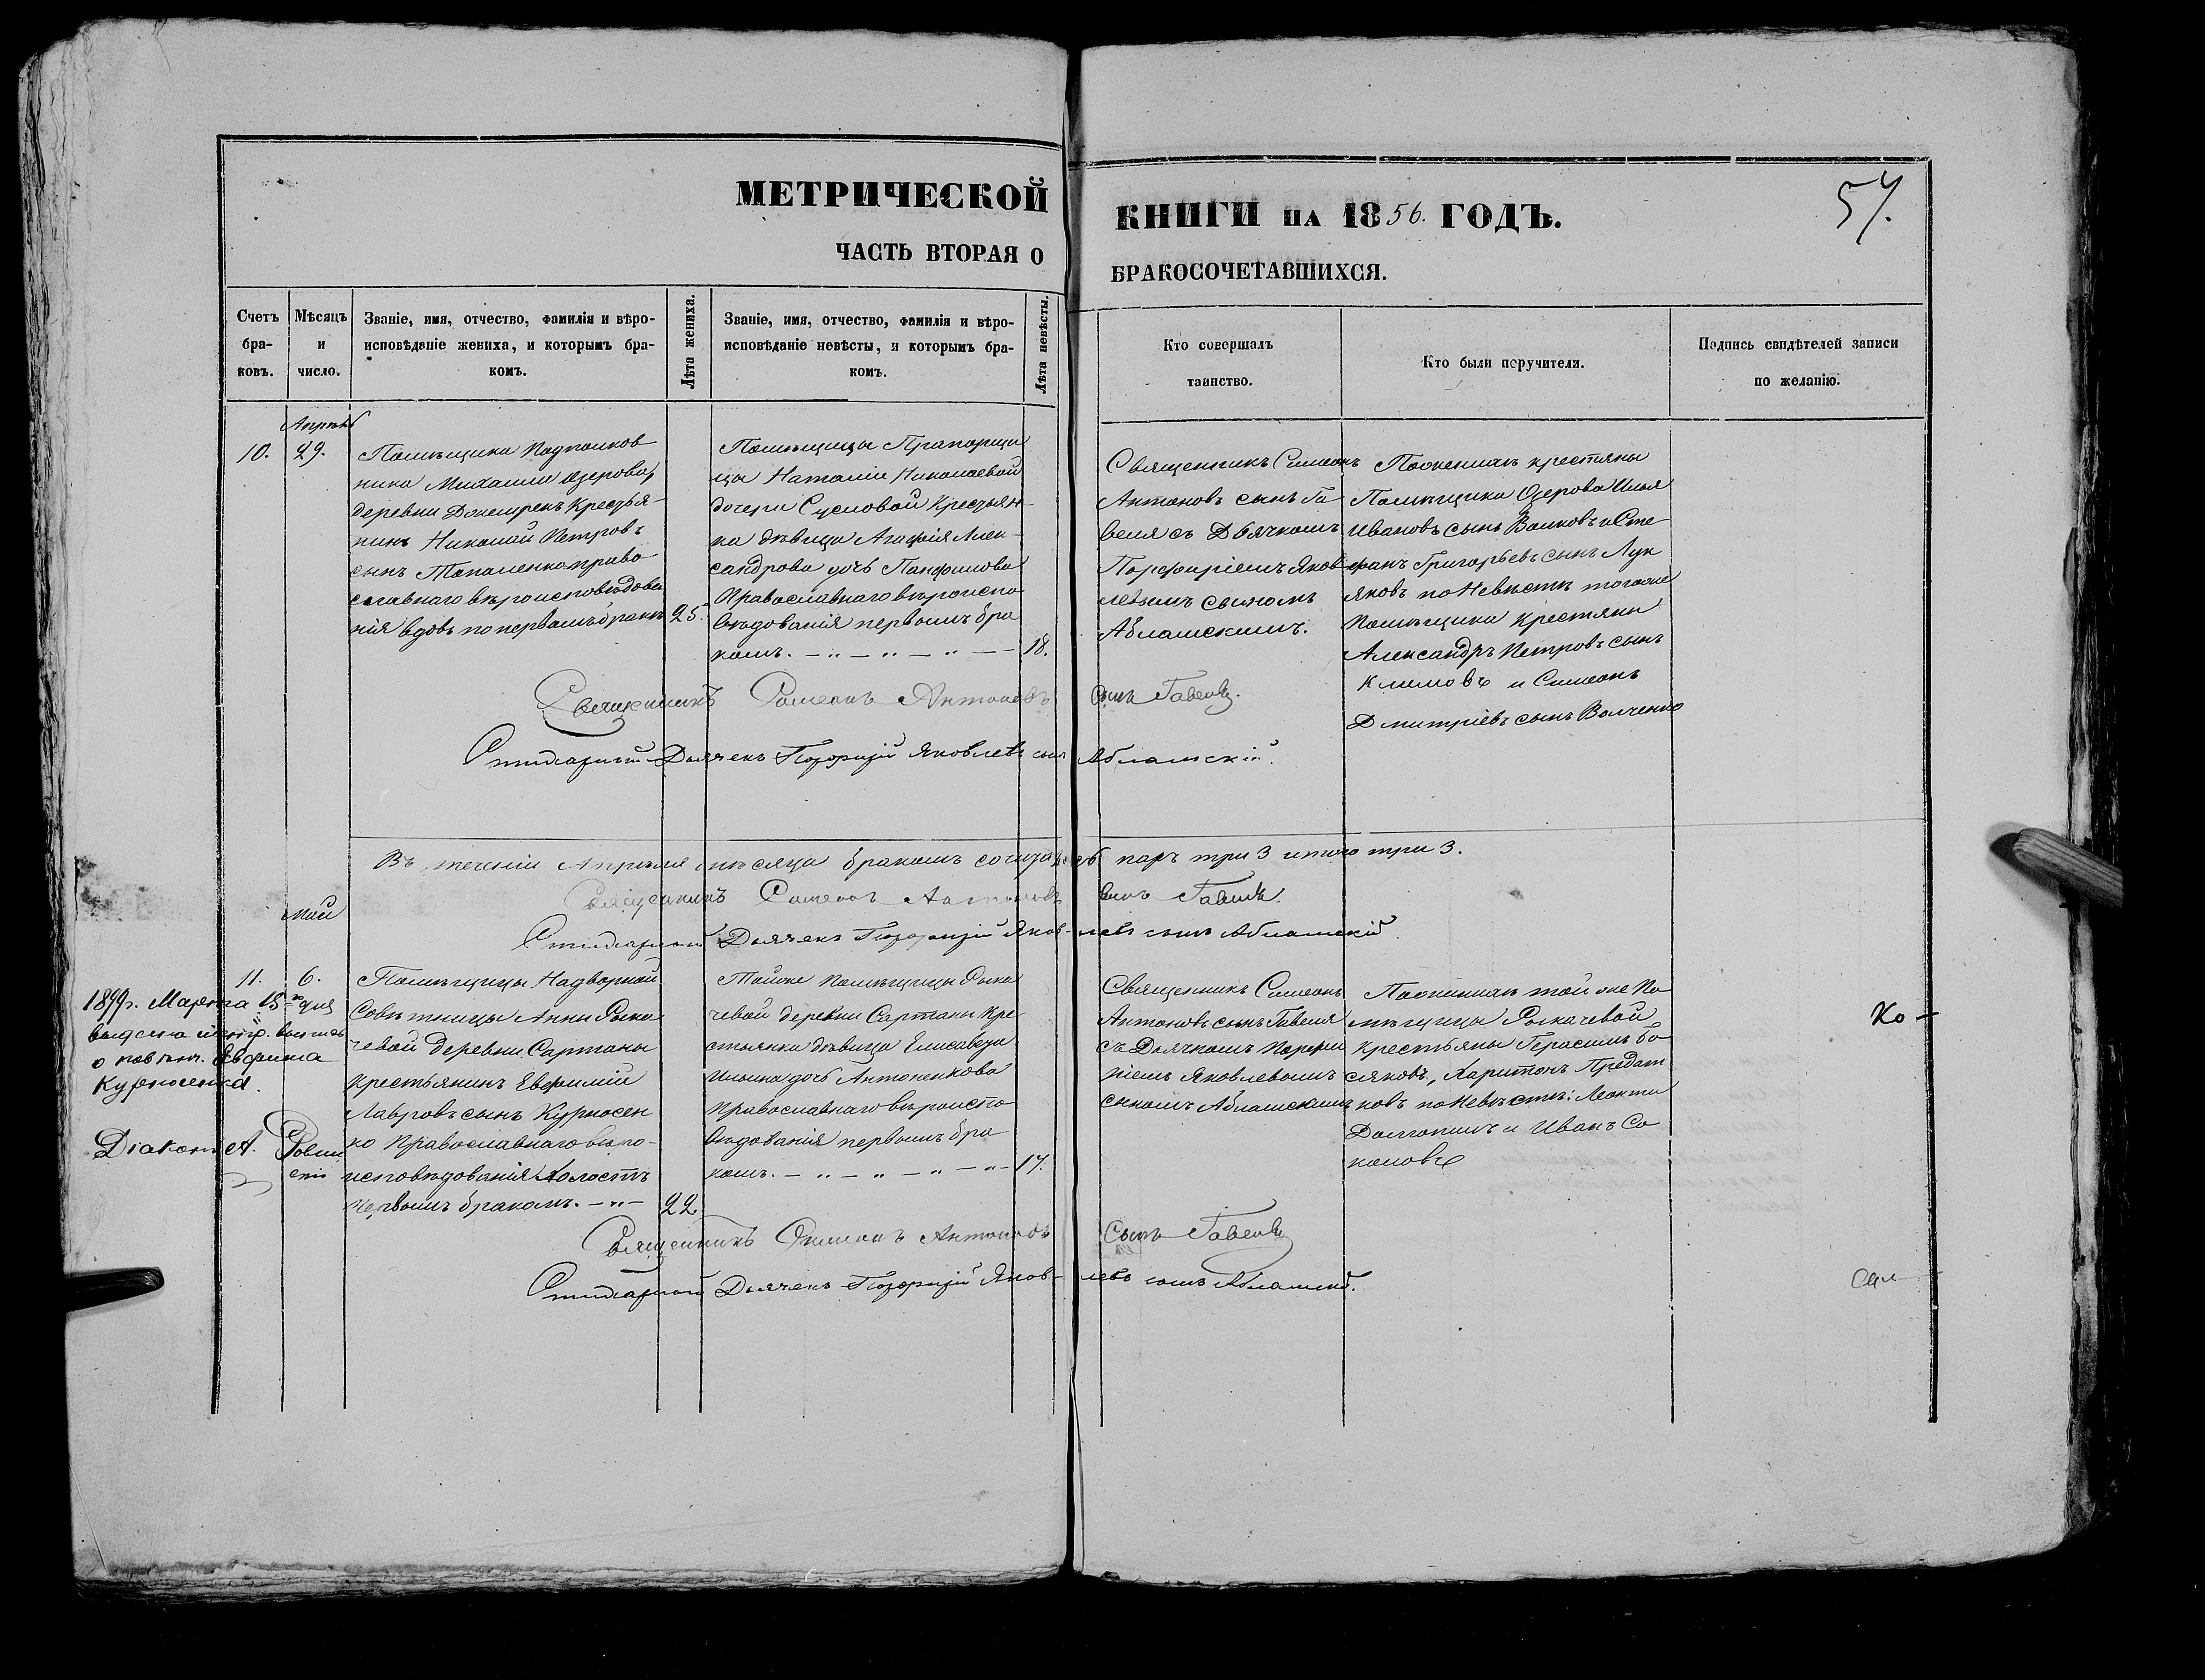 МЕТРИЧЕСКОЙ КНИГИ НА 1856. ГОДЪ.
57.
ЧАСТЬ ВТОРАЯ О БРАКОСОЧЕТАВШИХСЯ.
Счетъ бра-
ковъ.
Мѣсяцъ
и
число.
Званіе, имя, отчество, фамилія и вѣро-
исповѣданіе жениха, и которымъ бра-
комъ.
Лѣта жениха.
Званіе, имя, отчество, фамилія и вѣро-
исповѣданіе невѣсты, и которымъ бра-
комъ.
Лѣта невѣсты.
Кто совершалъ
таинство.
Кто были поручители.
Подпись свидѣтелей записи
по желанію.
10.
29.
Помѣщика Подполков
ника Михаила Озерова,
деревни крестья-
нинъ Николай Петровъ
сынъ право
славнаго вѣроисповѣдова
нія вдовъ по первомъ бракѣ
25.
Помѣщицы Прапорщи
цы Наталіи Николаевой
дочери Сусловой крестьян-
ка дѣвица Агафія Алек-
сандрова дочь Панфилова
Православнаго вѣроиспо
вѣдованія первымъ бра
комъ. – „ – „ – „ –
18.
Священникъ Симеонъ
Антоновъ сынъ Га
веля съ Дьячкомъ
Порфиріемъ Яков
левымъ сыномъ
Абламскимъ.
По женихѣ крестяны
Помѣщика Озерова Илья
Ивановъ сынъ Волковъ и Сте-
фанъ Григорьевъ сынъ Лук
яновъ по Невѣстѣ тогоже
Помѣщика крестяни
Александръ Петровъ сынъ
Климовъ и Симеонъ
Дмитріевъ сынъ Волченко
Священникъ Симеонъ Антоновъ Сынъ Гавеля.
Дьячекъ Порфирій Яковлевъ сынъ Абламскій.
Въ теченіи Апрѣля мѣсяца бракомъ сочитались паръ три 3 итого три 3.
Священникъ Симеонъ Антоновъ сынъ Гавеля.
Маій
Дьячекъ Порфирій Яков-левъ сынъ Абламскій
11.
6.
Помѣщицы Надворной
Совѣтницы Анны Рыка
чевой деревни Сартаны
крестьянинъ Евфимій
Лавровъ сынъ Курносен
ко Православнаго вѣро-
исповѣдованія Холостъ
Первымъ бракомъ. – „ –
22
Тойже помѣщицы Рыка
чевой деревни Сартаны кре-
стьянка дѣвица Елисавета
Ильина дочь Антоненкова
Православнаго вѣроиспо
вѣдованія первымъ бра
комъ. – „ – „ – „ – „ –
17.
Священникъ Симеонъ
Антоновъ сынъ Гавеля
съ Дьячкомъ Порфи
ріемъ Яковлевымъ
сыномъ Абламскимъ
По женихѣ той же По
мѣщицы Рыкачевой
крестьяны Герасимъ Бо
сяковъ, Харитонъ Предат
ковъ по Невѣстѣ: Леонти
Долгопилъ и Иванъ Со
коловъ
1899 г. Марта 15 дня
выдана
о повѣнч. Евфима
Курносенка.
Діаконъ А.
Священникъ Симеонъ Антоновъ Сынъ Гавеля
Дьячекъ Порфирій Яков-левъ сынъ Абламскій.
Ко –